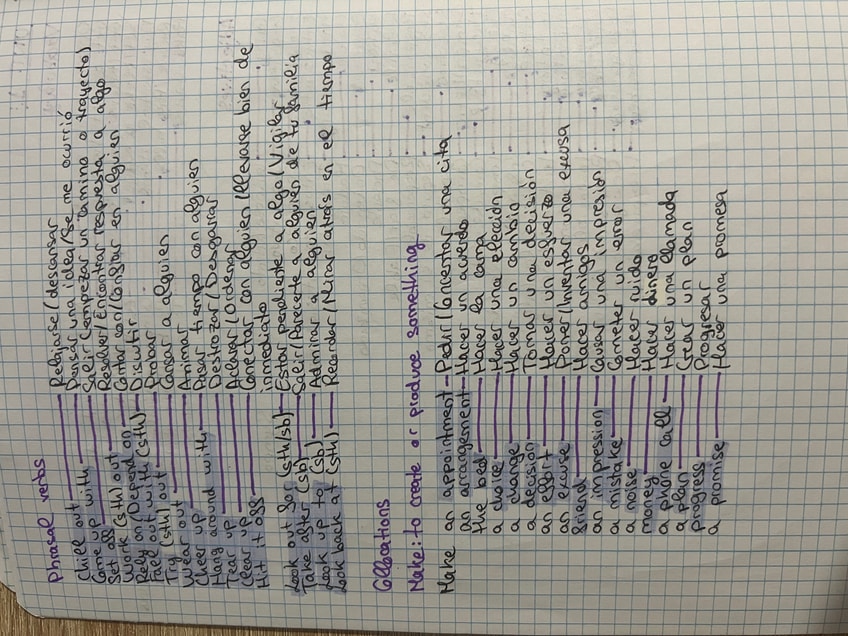 Phrasal verbs
Chill out — Relajarse/descansar
Come up with — Pensar una idea/Se me ocurrió
Set off — Salir (empezar un camino o trayecto)
Work (sth) out — Resolver/Encontrar respuesta a algo
Rely on/Depend on — Contar con/Confiar en alguien
Fall out with (sth) — Discutir
Try (sth) out — Probar
Wear out — Cansar a alguien
Cheer up — Animar
Hang around with — Pasar tiempo con alguien
Tear up — Destrozar/Desgarrar
Clear up — Aclarar/Ordenar
Hit it off — Conectar con alguien/llevarse bien de
inmediato
Look out for (sth/sb) — Estar pendiente a algo/Vigilar
Take after (sb) — Salir/Parecerte a alguien de tu familia
Look up to (sb) — Admirar a alguien
Look back at (sth) — Recordar/Mirar atrás en el tiempo
Collocations
Make: to create or produce something
Make an appointment — Pedir/Concertar una cita
an arrangement — Hacer un acuerdo
the bed — Hacer la cama
a choice — Hacer una elección
a change — Hacer un cambio
a decision — Tomar una decisión
an effort — Hacer un esfuerzo
an excuse — Poner/Inventar una excusa
friend — Hacer amigos
an impression — Causar una impresión
a mistake — Cometer un error
a noise — Hacer ruido
money — Hacer dinero
a phone call — Hacer una llamada
a plan — Crear un plan
progress — Progresar
a promise — Hacer una promesa